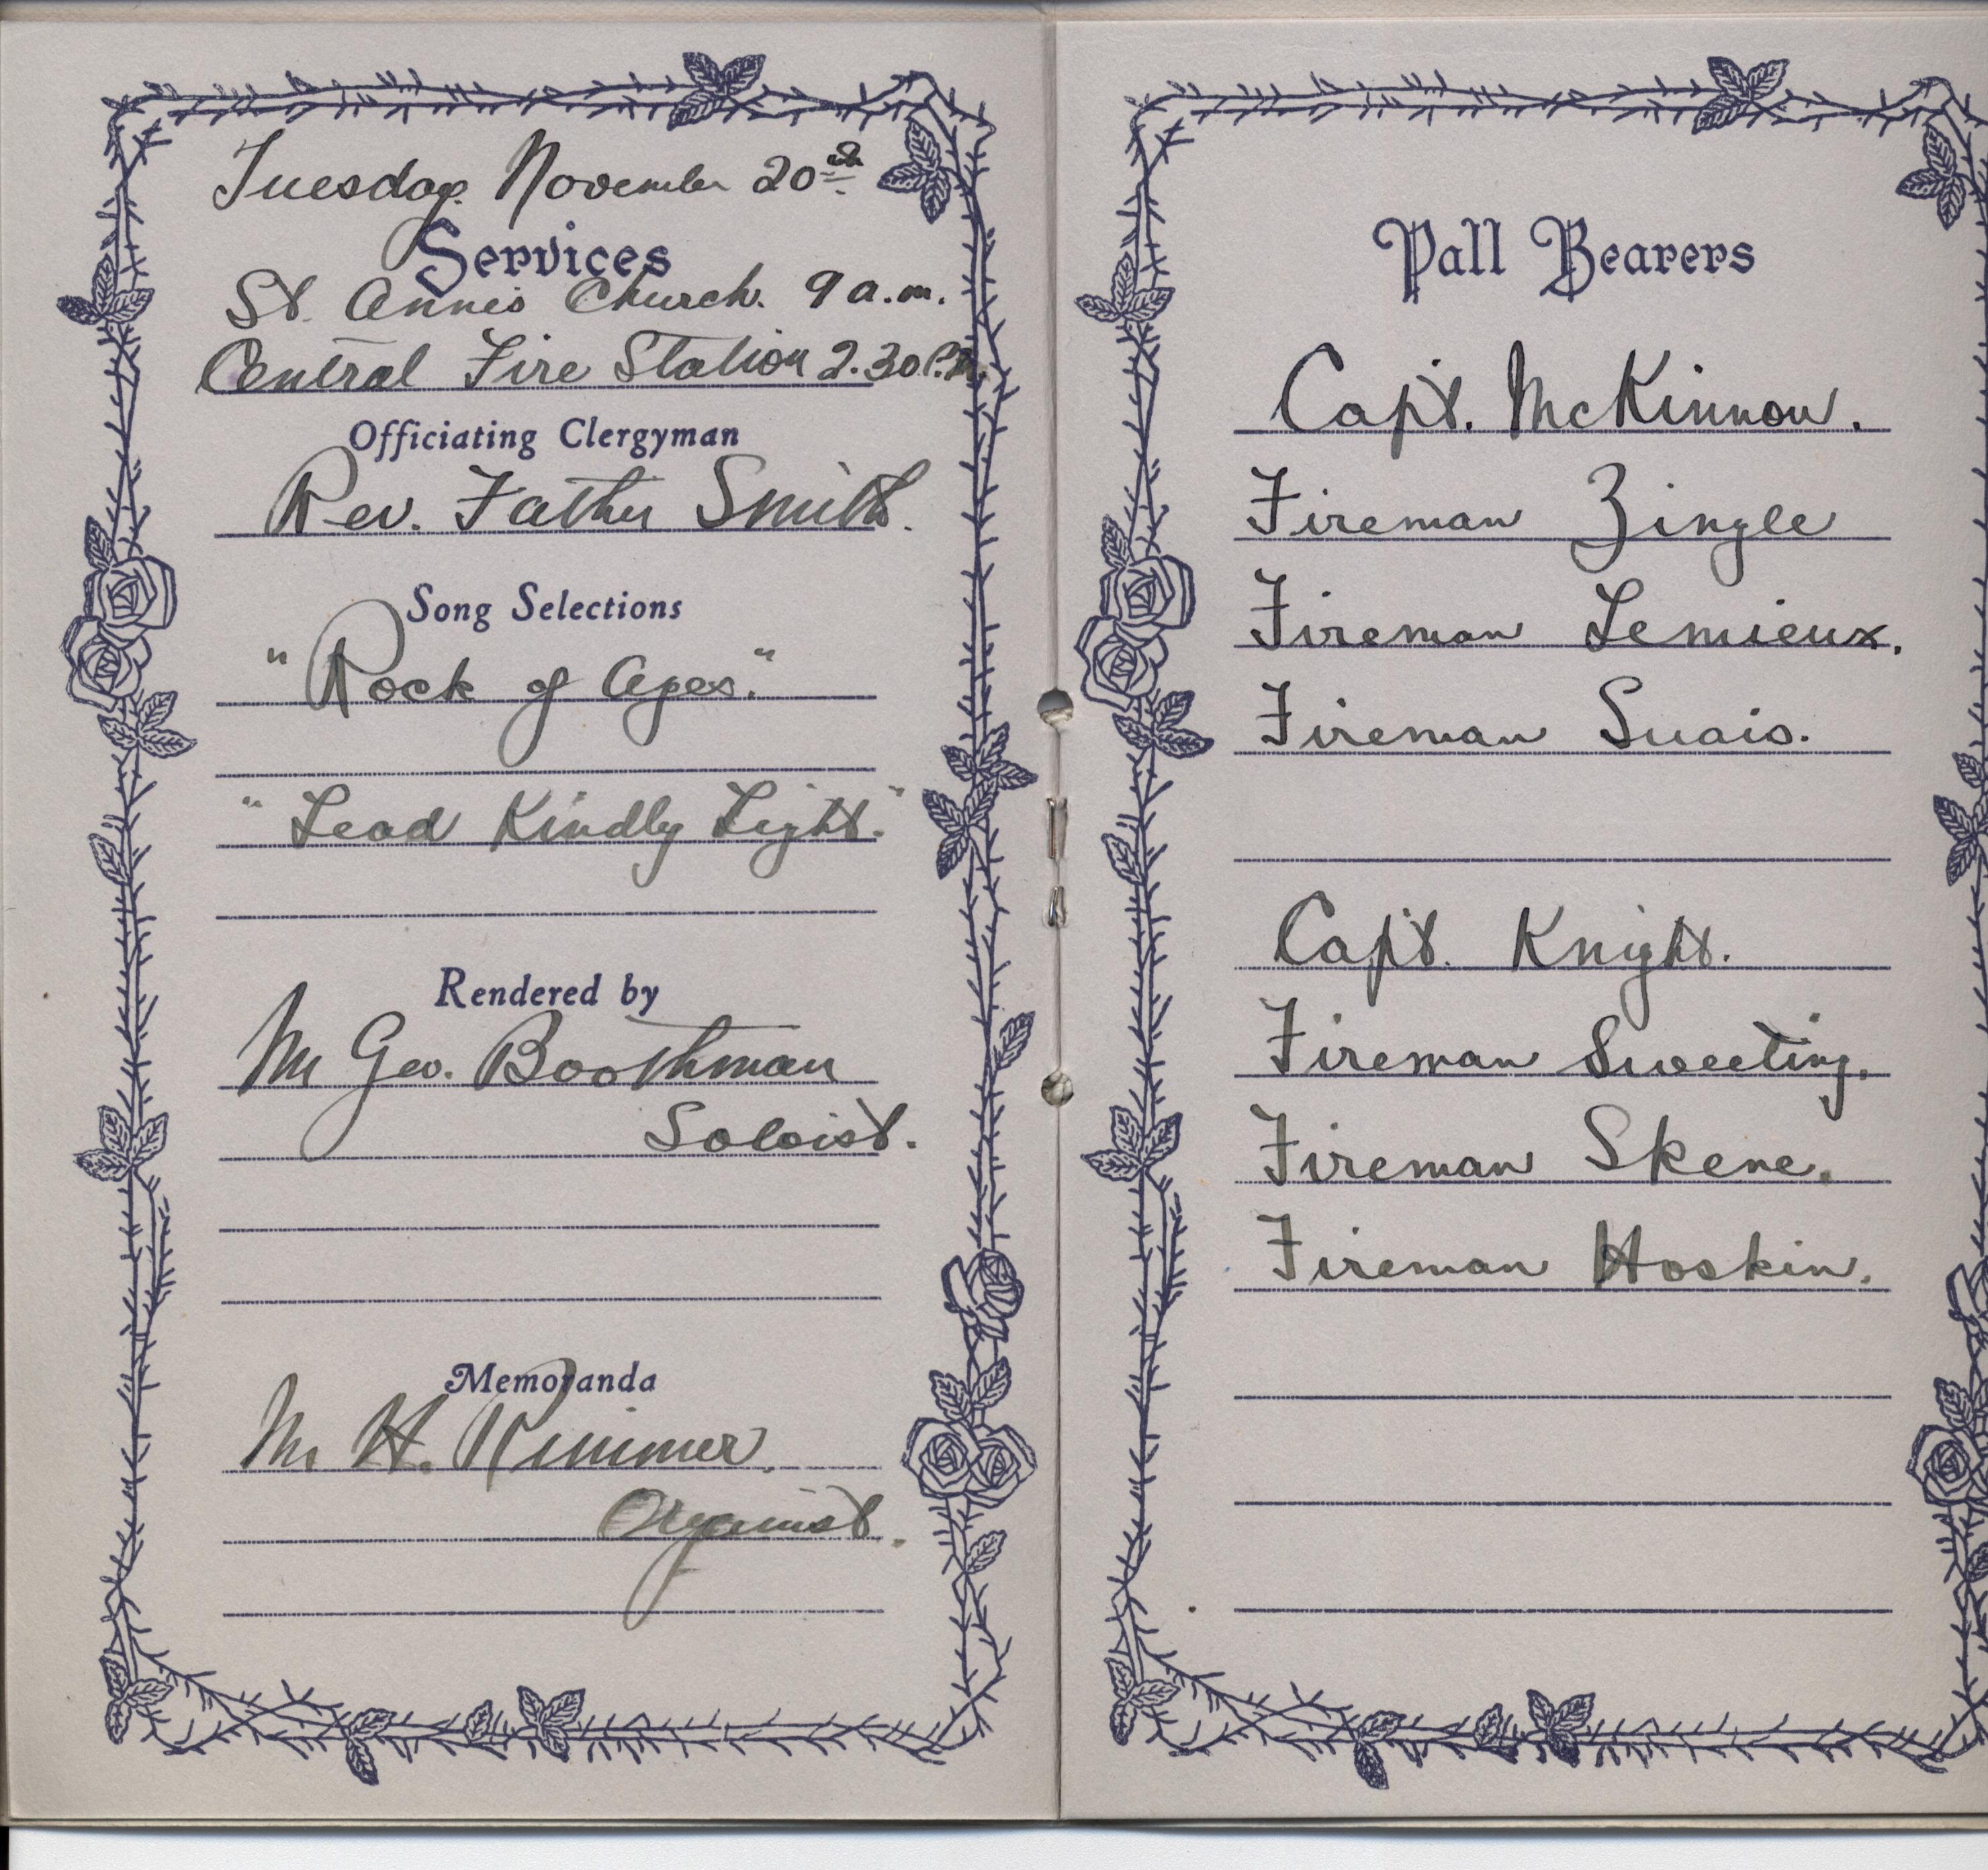 Tuesday November 20th
Services
St. Anne's Church. 9 a.m.
Central Fire Station 2.30 P.M.
Officiating Clergyman
Rev. Father Smith.
Song Selections
"Rock of Ages."
"Lead Kindly Light."
Rendered by
Mr Geo. Boothman
Soloist.
Memoranda
Mr H. Rimmer.
Organist.
Pall Bearers
Capt. McKinnon.
Fireman Zingle
Fireman Lemieux.
Fireman
Capt. Knight.
Fireman Sweeting.
Fireman Skene.
Fireman Hoskin.